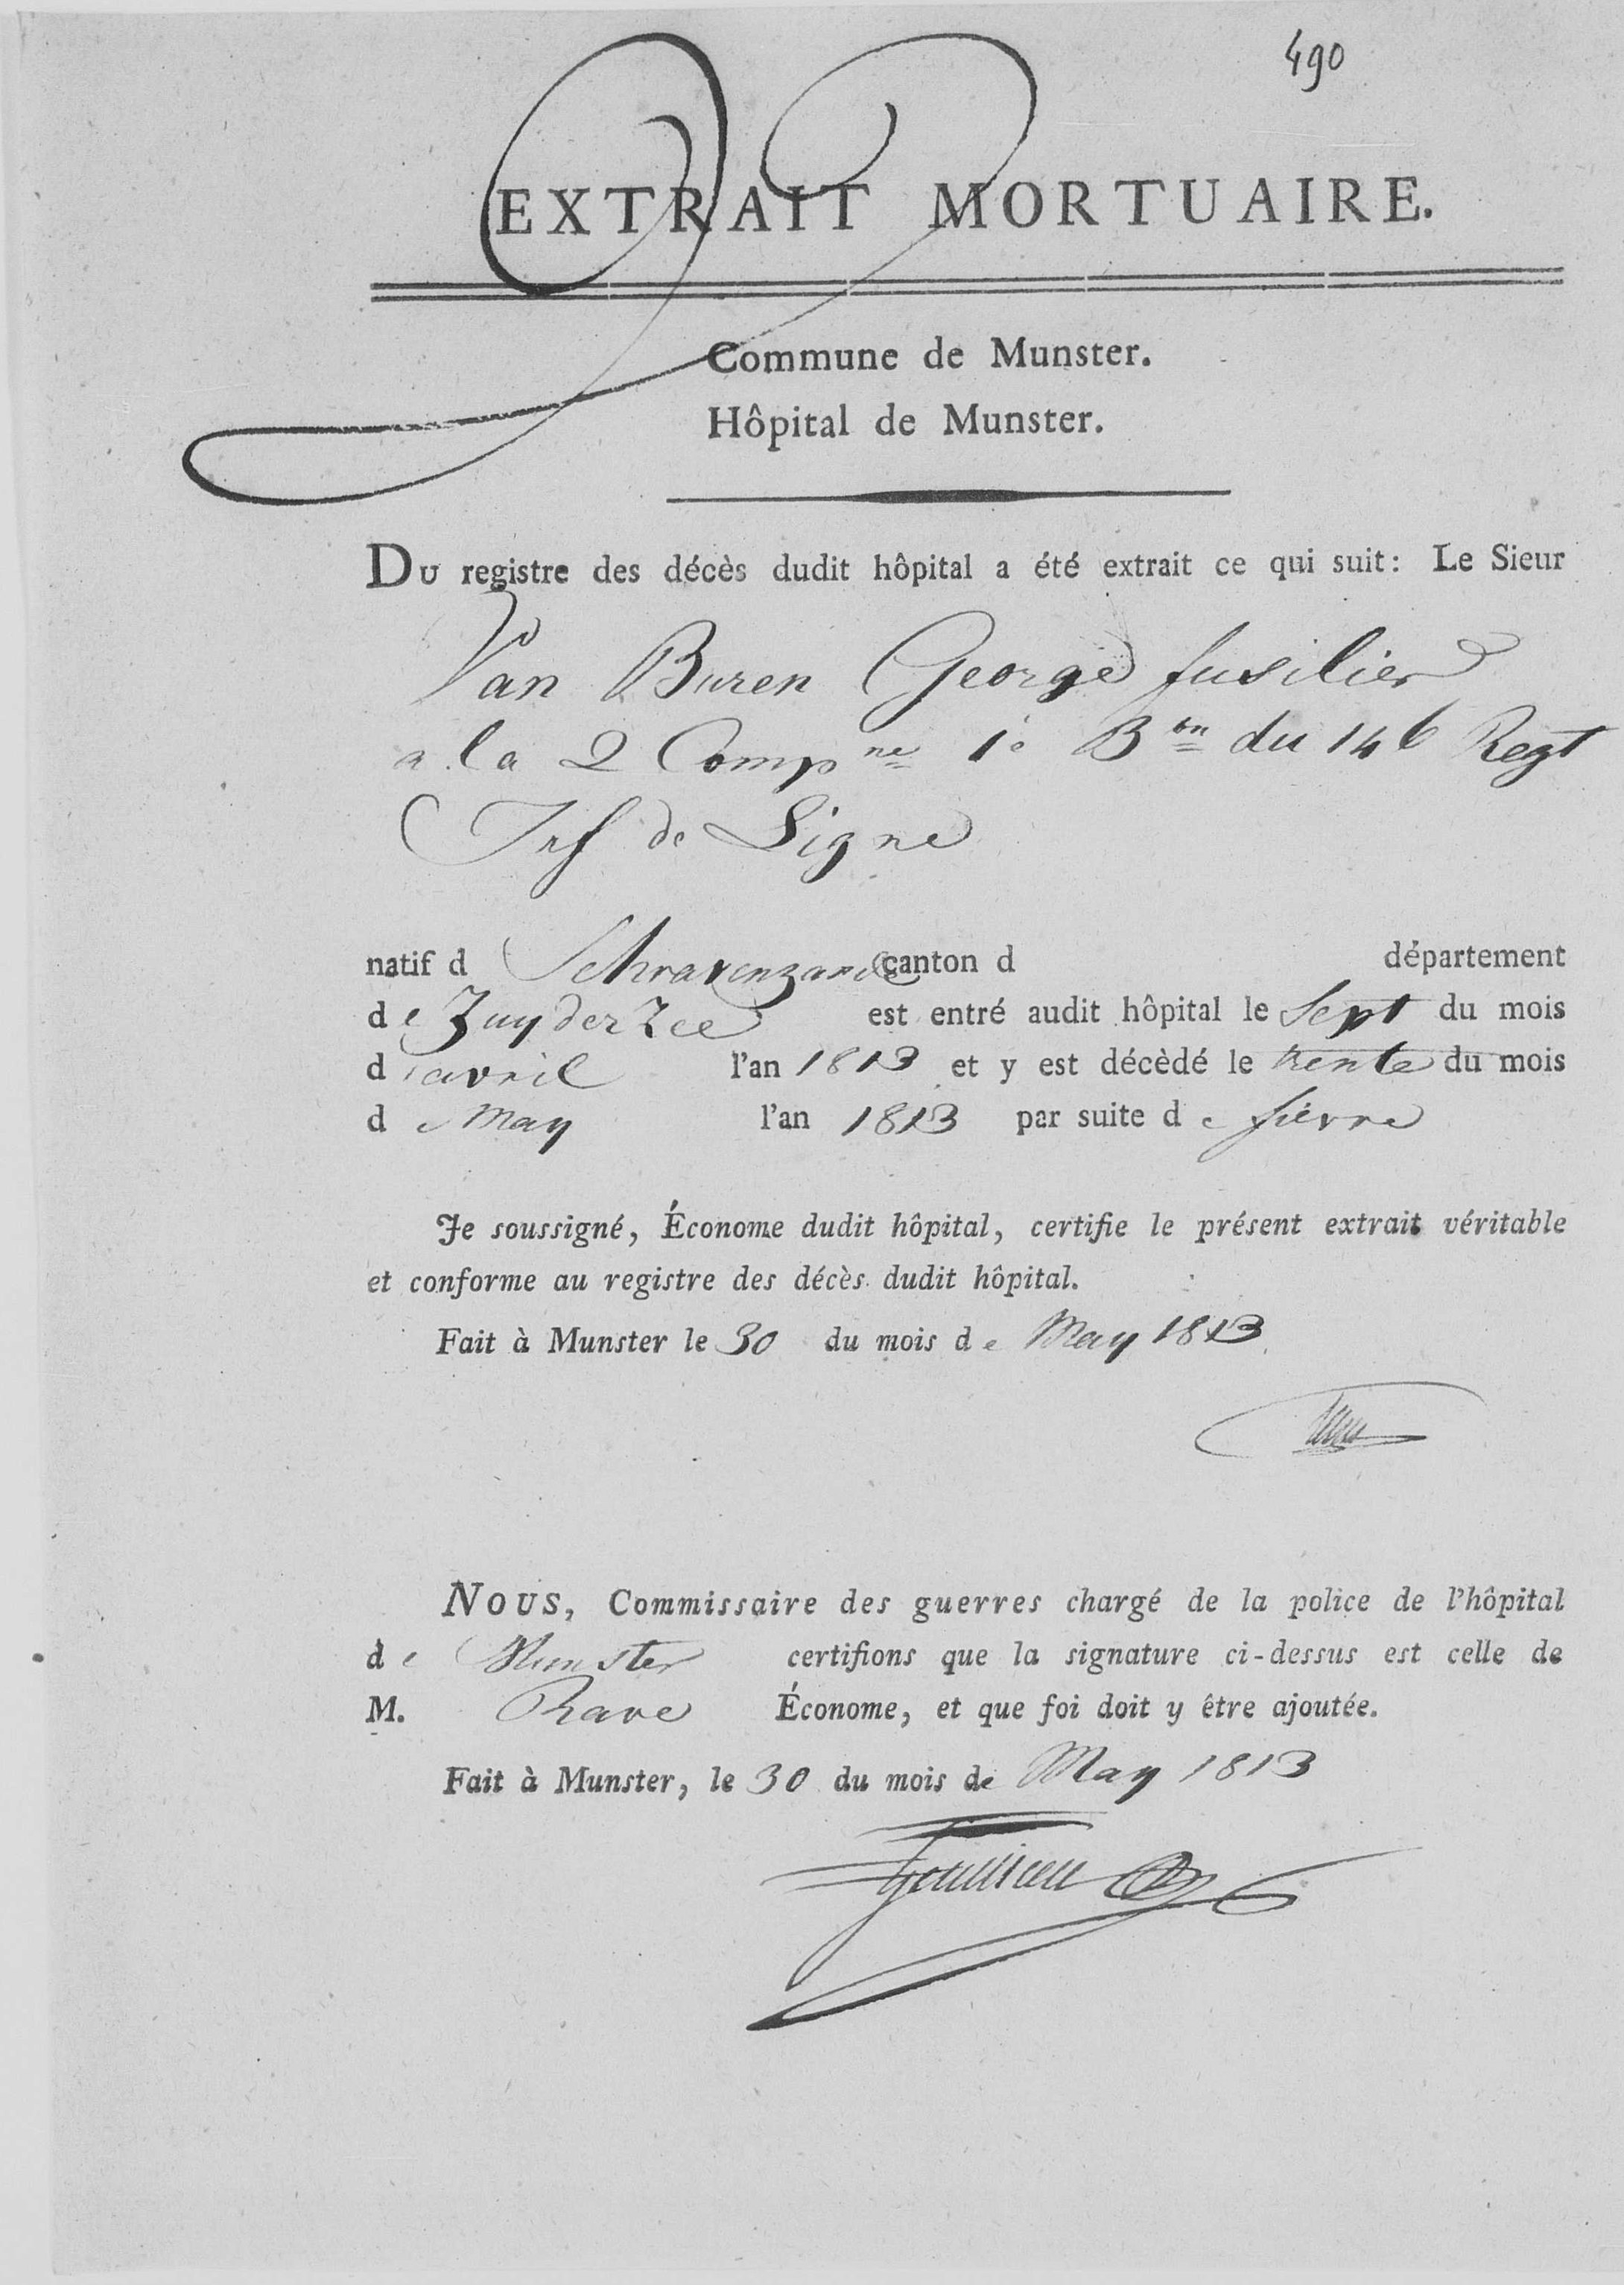 490
EXTRAIT MORTUAIRE.
Commune de Munster.
Hôpital de Munster.
DU registre des décès dudit hôpital a été extrait ce qui suit: Le Sieur
Van Buren George fusilier
a la 2 Comp ne 1e B on du 146 Regt
Inf de Ligne
natif d Schravenzande canton d département
de Zuyderzee est entré audit hôpital le Sept du mois
d'avril l'an 1813 et y est décèdé le trente du mois
de May l'an 1813 par suite de fievre
Je soussigné, Économe dudit hôpital, certifie le présent extrait véritable
et conforme au registre des décès dudit hôpital.
Fait à Munster le 30 du mois de May 1813
NOUS, Commissaire des guerres chargé de la police de l'hôpital
de Munster certifions que la signature ci-dessus est celle de
M. Rave Économe, et que foi doit y être ajoutée.
Fait à Munster, le 30 du mois de May 1813